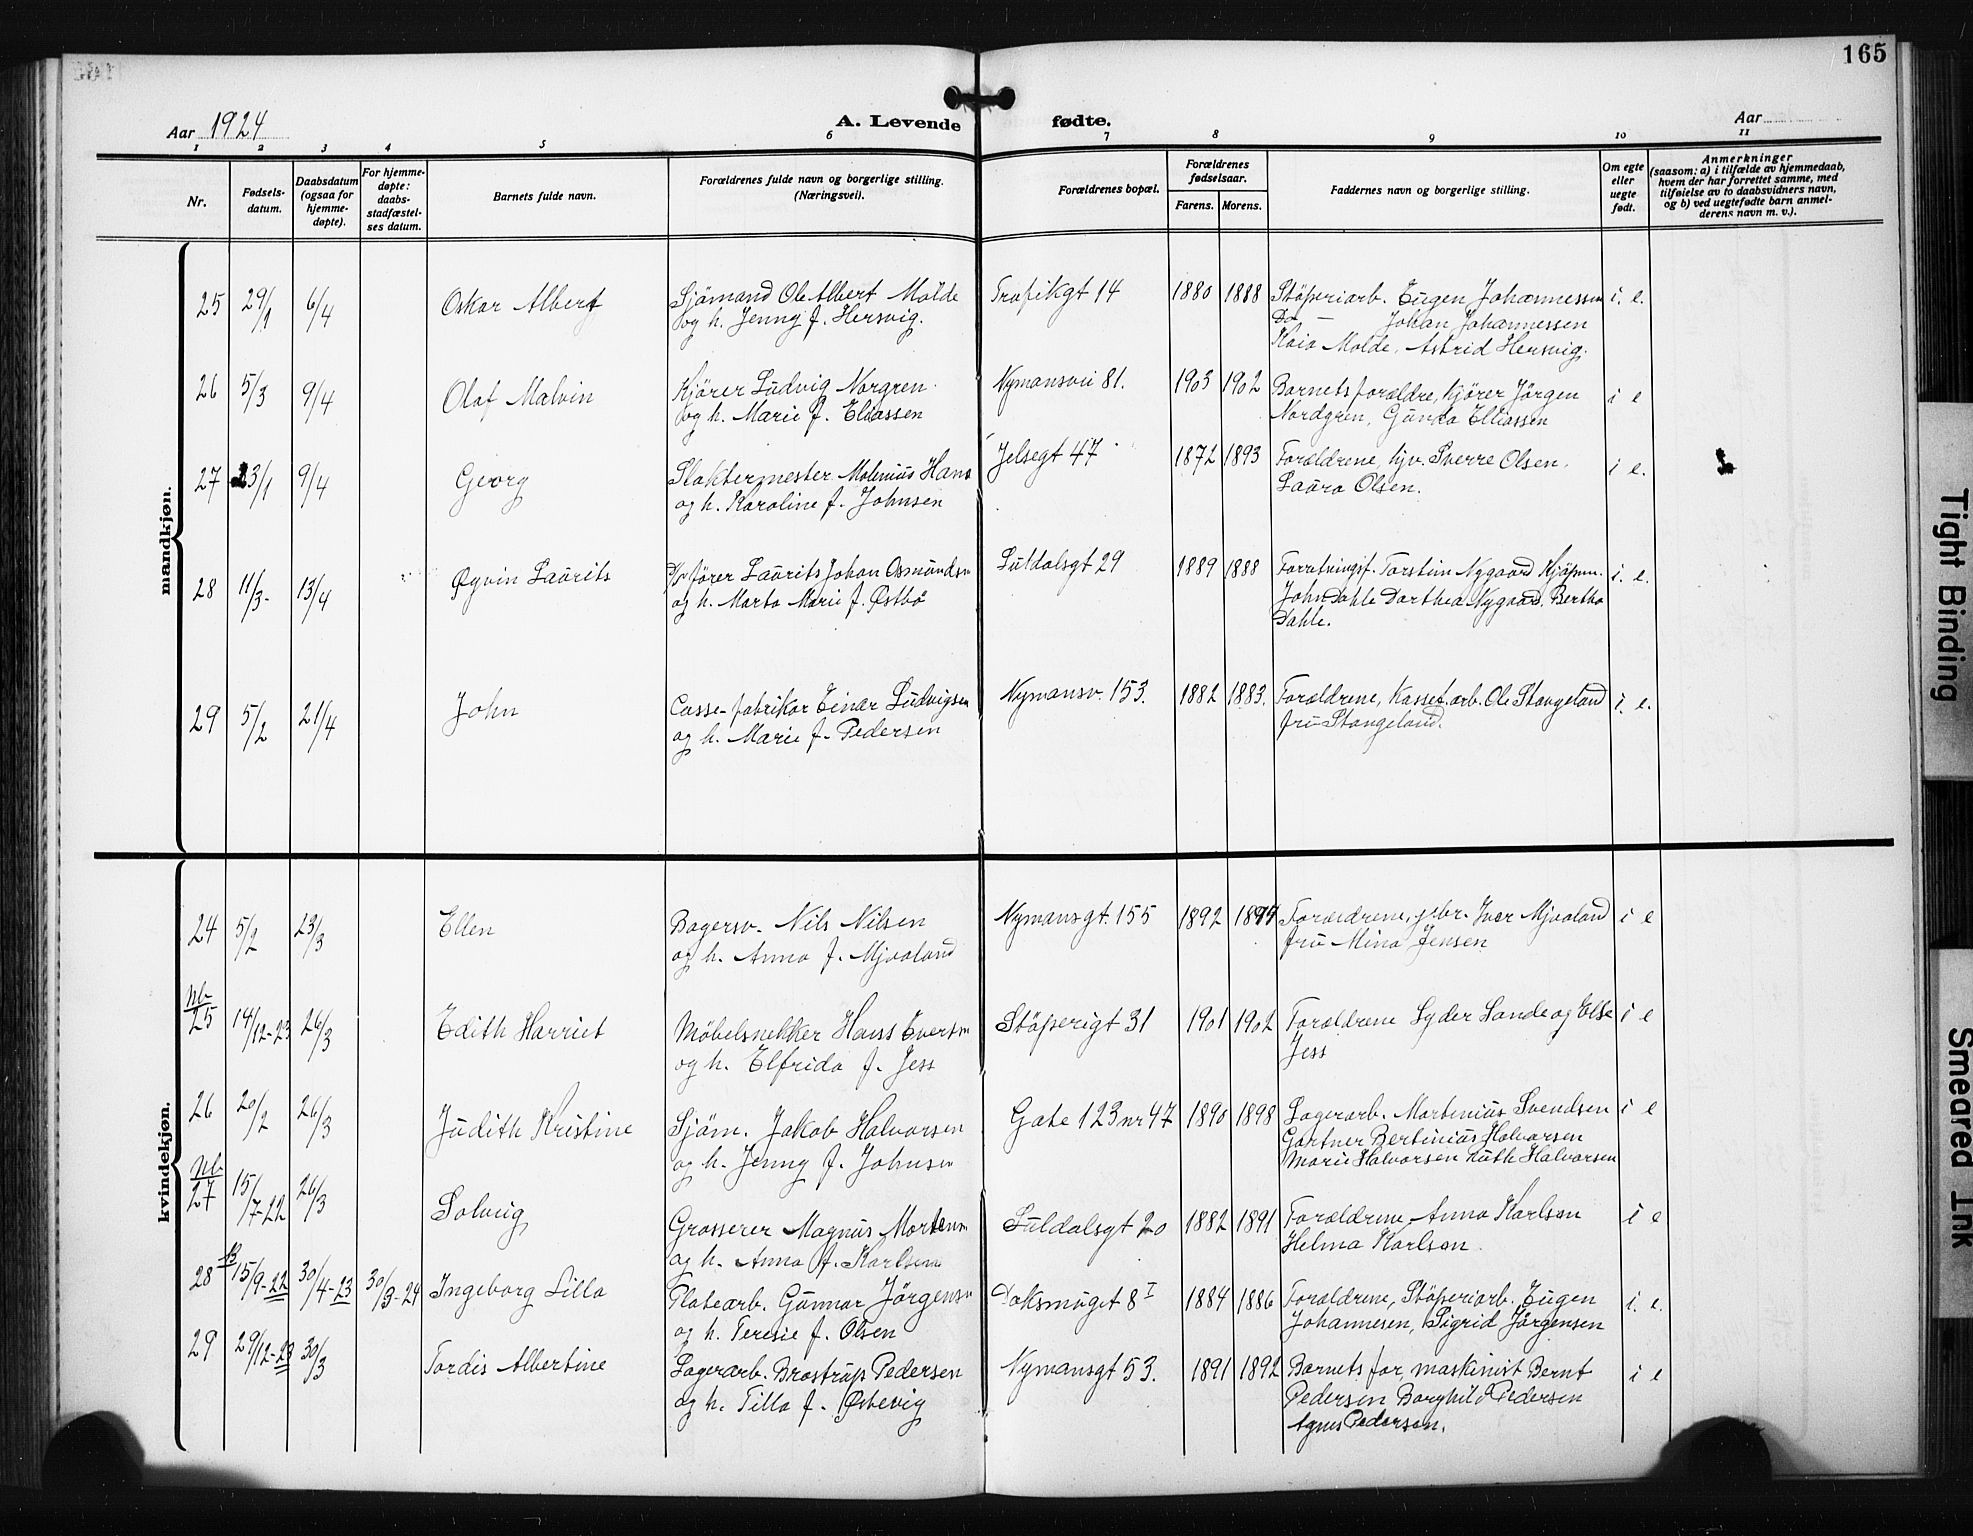 165
Aar 1924 A. Levende fødte. Aar
1 2 3 4 5 6 7 8 9 10 11
Nr. Fødsels-datum. Daabsdatum (ogsaa for hjemme-døpte). For hjemme-døpte: daabs-stadfæstel-ses datum. Barnets fulde navn. Forældrenes fulde navn og borgerlige stilling. (Næringsvei). Forældrenes bopæl. Forældrenes fødselsaar. Farens. Morens. Faddernes navn og borgerlige stilling. Om egte eller uegte født. Anmerkninger (saasom: a) i tilfælde av hjemmedaab, hvem der har forrettet samme, med tilføielse av to daabsvidners navn, og b) ved uegtefødte barn anmel-derens navn m. v.).
mandkjøn.
25 29/1 6/4 Oskar Albert Sjömand Ole Albert Molde Trafikgt 14 1880 1888 Stöperiarb. Eugen Johannessen i. e.
og h. Jenny f. Hersvig. Do — Johan Johannessen
Kaia Molde, Astrid Hersvig.
26 5/3 9/4 Olaf Malvin Kjörer Ludvig Norgren Nymansvei 81. 1903 1902 Barnets forældre, kjörer Jörgen i e
og h. Marie f. Eliassen Nordgren, Gunda Elliassen
27 23/1 9/4 Georg Slaktermester Molenius Hana Jelsegt 47 1872 1893 Forældrene, hjv. Sverre Olsen. i e.
og h. Karoline f. Johnsen Laura Olsen.
28 11/3- 13/4 Øyvin Laurits förer Laurits Johan Osmundsen Suldalsgt 29 1889 1888 Forretningsf. Torstein Nygaard Kjöpm. i. e.
og h. Marta Marie f. Østbö John Dahle Dorthea Nygaard, Bertha
Dahle.
29 5/2 21/4 John Casse-fabrikar Einar Ludvigsen Nymansv. 153. 1882 1883. Forældrene, Kassef.arb. Ole Stangeland i. e.
og h. Marie f. Pedersen fru Stangeland.
kvindekjøn.
24 5/2 23/3 Ellen Bagersv. Nils Nilsen Nymansgt. 155 1892 1897 Forældrene, gbr. Iver Mjaaland i e
og h. Anna f. Mjaaland fru Mina Jensen
nb
25 14/12-23 26/3 Edith Harriet Möbelsnekker Hans Evertsen Stöperigt 31 1901 1902 Forældrene Syder Sande og Else i e
og h. Elfrida f. Jess Jess
26 20/2 26/3 Judith Kristine Sjöm. Jakob Halvorsen Gate 123 nr 47 1890 1898 Lagerarb. Martinius Svendsen i e
og h. Jenny f. Johnsen Gartner Bertinius Halvorsen
Marie Halvorsen Ruth Halvorsen
nb
27 15/7-22 26/3 Solveig Grosserer Magnus Mortensen Suldalsgt 20 1882 1891 Forældrene, Anna Karlsen i e
og h. Anna f. Karlsen Helma Karlsen
28 15/9-22 30/4-23 30/3-24 Ingeborg Lilla Platearb. Gunnar Jörgensen Doksmuget 8 I 1884 1886 Forældrene, Stöperiarb. Eugen i. e.
og h. Teresie f. Olsen Johannesen, Sigrid Jörgensen
29 29/12-23 30/3 Tordis Albertine Lagerarb. Brostrup Pedersen Nymansgt 53. 1891 1892 Barnets far, maskinist Bernt i e
og h. Tilla f. Østevig Pedersen Borghild Pedersen
Agnes Pedersen.
Tight Binding
Smeared Ink